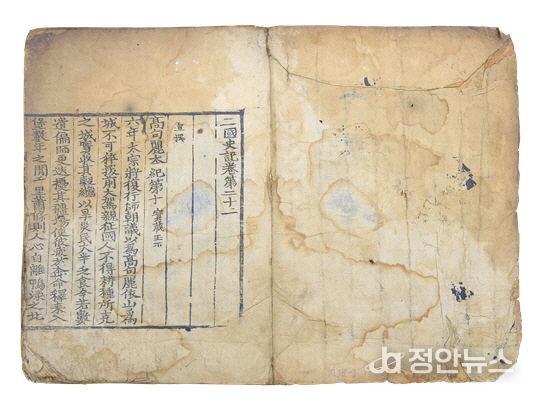 二國史記卷第二十一
宣撰
高句麗本紀第十 寶藏王
六年太宗將復行師朝議以爲高句麗依山爲
城不可猝拔前大駕親征國人不得耕種所克
之城實收其穀繼以旱災民太半乏食今若數
遣偏師更迭擾其疆埸使彼疲於奔命釋耒入
堡數年之間千里蕭條則人心自離鴨淥之北
정안뉴스